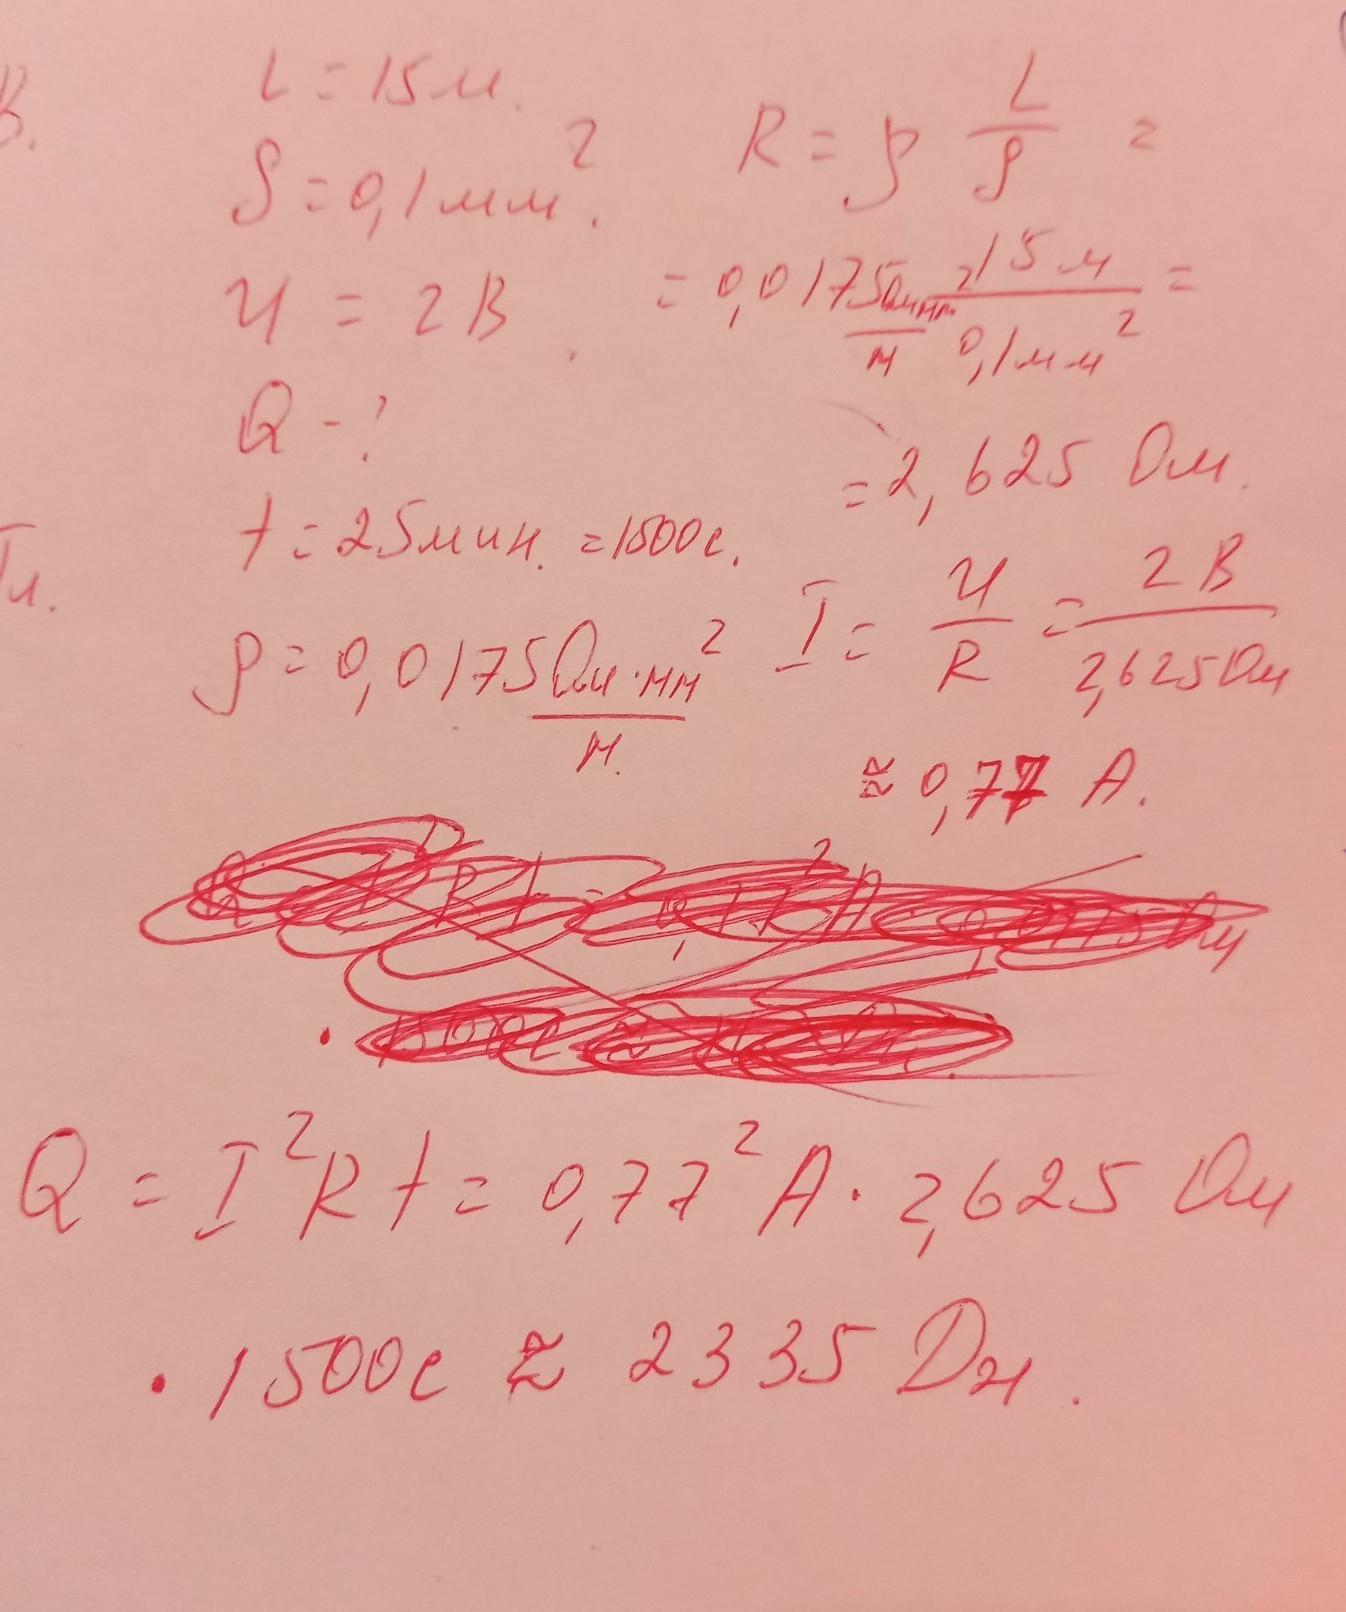 В.
L = 15 м.
S = 0,1 мм².
U = 2 В.
Q - ?
t = 25 мин. = 1500 с.
ρ = 0,0175 Ом·мм²/м.
R = ρ L/S =
= 0,0175 Ом мм²/м 15 м/0,1 мм² =
= 2,625 Ом.
I = U/R = 2 В/2,625 Ом
≈ 0,77 А.
Q = I²Rt = 0,77² А · 2,625 Ом
· 1500 с ≈ 2335 Дж.